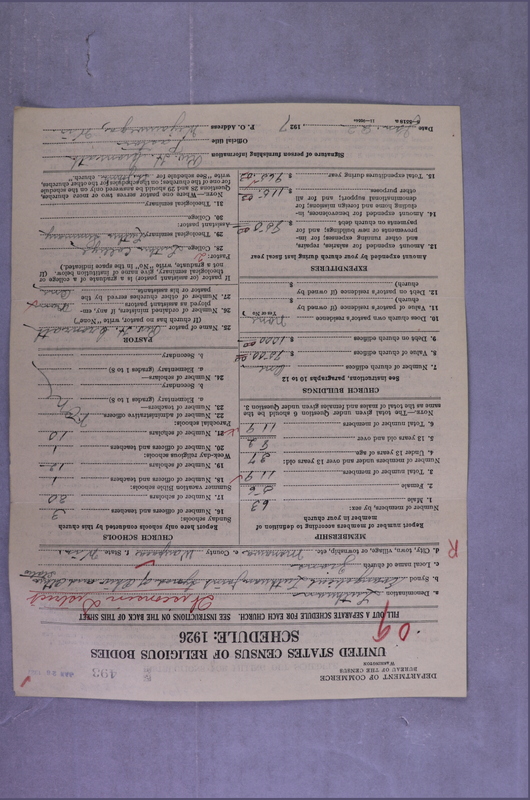 DEPARTMENT OF COMMERCE
BUREAU OF THE CENSUS
WASHINGTON
493
UNITED STATES CENSUS OF RELIGIOUS BODIES
SCHEDULE: 1926
09
FILL OUT A SEPARATE SCHEDULE FOR EACH CHURCH. SEE INSTRUCTIONS ON THE BACK OF THIS SHEET
Wisconsin District
a. Denomination Lutheran
b. Synod Evangelical Lutheran Joint Synod of Ohio and Other States
c. Local name of church
d. City, town, village, or township, etc. Manawa e. County Waupaca f. State Wis.
R
MEMBERSHIP
Report number of members according to definition of member in your church
Number of members, by sex:
1. Male 63
2. Female 56
3. Total number of members 119
Number of members under and over 13 years old:
4. Under 13 years of age 27
5. 13 years old and over 92
6. Total number of members 119
NOTE.—The total given under Question 6 should be the same as the total of males and females given under Question 3.
CHURCH BUILDINGS
See instructions, paragraphs 10 to 12
7. Number of church edifices One
8. Value of church edifices $
9. Debt on church edifices $
10. Does church own pastor's residence None
(Yes or No)
11. Value of pastor's residence (if owned by church) $
12. Debt on pastor's residence (if owned by church) $
EXPENDITURES
Amount expended by your church during last fiscal year
13. Amount expended for salaries, repairs, and other running expenses; for improvements or new buildings; and for payments on church debt $
14. Amount expended for benevolences, including home and foreign missions; for denominational support; and for all other purposes $
15. Total expenditures during year $
CHURCH SCHOOLS
Report here only schools conducted by this church
Sunday schools:
16. Number of officers and teachers 3
17. Number of scholars 30
Summer vacation Bible schools:
18. Number of officers and teachers 1
19. Number of scholars 12
Week-day religious schools:
20. Number of officers and teachers 1
21. Number of scholars 10
Parochial schools:
22. Number of administrative officers
23. Number of teachers—
a. Elementary (grades 1 to 8)
b. Secondary
24. Number of scholars—
a. Elementary (grades 1 to 8)
b. Secondary
PASTOR
25. Name of pastor
(If church has no pastor, write "None")
26. Number of ordained ministers, if any, employed as assistant pastor
27. Number of other churches served by the pastor or his assistants
If pastor (or assistant pastor) is a graduate of a college or theological seminary, give name of institution below. (If not a graduate, write "No" in the space indicated.)
Pastor:
28. College
29. Theological seminary
Assistant pastor:
30. College
31. Theological seminary
NOTE.—Where one pastor serves two or more churches, Questions 28 and 29 should be answered only on the schedule for one of the churches; on the schedules for the other churches, write "See schedule for church."
Signature of person furnishing information
Official title Pastor
Date 1927
P. O. Address Weyauwega, Wis